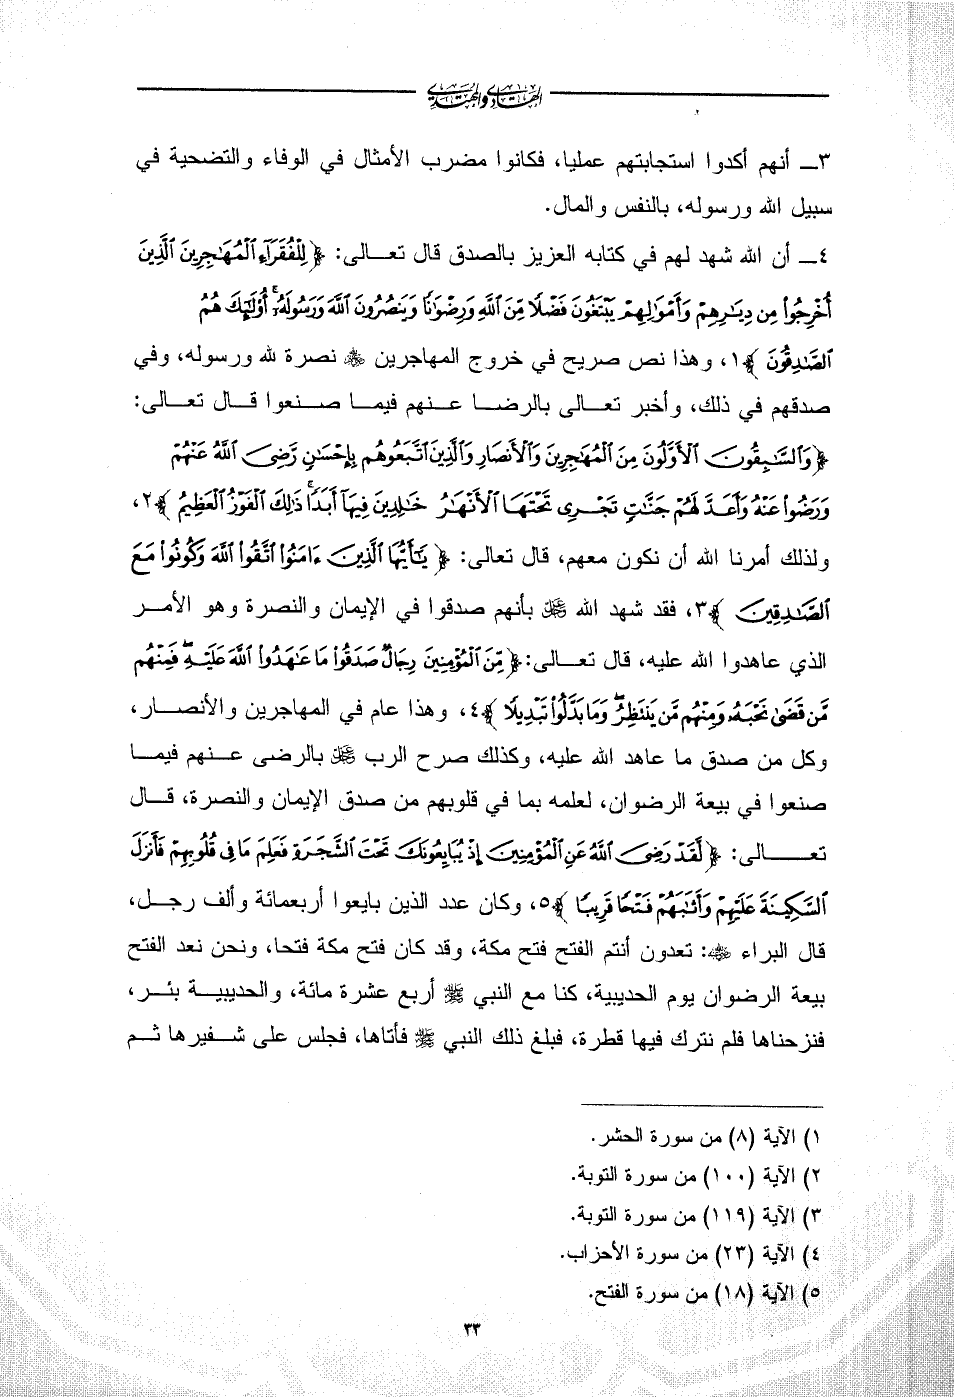 الهادي والمهتدي
٣ـ أنهم أكدوا استجابتهم عمليا، فكانوا مضرب الأمثال في الوفاء والتضحية في
سبيل الله ورسوله، بالنفس والمال.
٤ـ أن الله شهد لهم في كتابه العزيز بالصدق قال تعـــالى: ﴿ لِلْفُقَرَآءِ ٱلْمُهَـٰجِرِينَ ٱلَّذِينَ
أُخْرِجُوا۟ مِن دِيَـٰرِهِمْ وَأَمْوَٰلِهِمْ يَبْتَغُونَ فَضْلًا مِّنَ ٱللَّهِ وَرِضْوَٰنًا وَيَنصُرُونَ ٱللَّهَ وَرَسُولَهُۥٓ ۚ أُو۟لَـٰٓئِكَ هُمُ
ٱلصَّـٰدِقُونَ ﴾١، وهذا نص صريح في خروج المهاجرين ﷺ نصرة لله ورسوله، وفي
صدقهم في ذلك، وأخبر تعـــالى بالرضـــا عـــنهم فيمـــا صـــنعوا قـــال تعـــالى:
﴿ وَٱلسَّـٰبِقُونَ ٱلْأَوَّلُونَ مِنَ ٱلْمُهَـٰجِرِينَ وَٱلْأَنصَارِ وَٱلَّذِينَ ٱتَّبَعُوهُم بِإِحْسَـٰنٍ رَّضِىَ ٱللَّهُ عَنْهُمْ
وَرَضُوا۟ عَنْهُ وَأَعَدَّ لَهُمْ جَنَّـٰتٍ تَجْرِى تَحْتَهَا ٱلْأَنْهَـٰرُ خَـٰلِدِينَ فِيهَآ أَبَدًا ۚ ذَٰلِكَ ٱلْفَوْزُ ٱلْعَظِيمُ ﴾٢،
ولذلك أمرنا الله أن نكون معهم، قال تعالى: ﴿ يَـٰٓأَيُّهَا ٱلَّذِينَ ءَامَنُوا۟ ٱتَّقُوا۟ ٱللَّهَ وَكُونُوا۟ مَعَ
ٱلصَّـٰدِقِينَ ﴾٣، فقد شهد الله ﷻ بأنهم صدقوا في الإيمان والنصرة وهو الأمـــر
الذي عاهدوا الله عليه، قال تعـــالى: ﴿ مِّنَ ٱلْمُؤْمِنِينَ رِجَالٌ صَدَقُوا۟ مَا عَـٰهَدُوا۟ ٱللَّهَ عَلَيْهِ ۖ فَمِنْهُم
مَّن قَضَىٰ نَحْبَهُۥ وَمِنْهُم مَّن يَنتَظِرُ ۖ وَمَا بَدَّلُوا۟ تَبْدِيلًا ﴾٤، وهذا عام في المهاجرين والأنصـــار،
وكل من صدق ما عاهد الله عليه، وكذلك صرح الرب ﷻ بالرضى عـــنهم فيمـــا
صنعوا في بيعة الرضوان، لعلمه بما في قلوبهم من صدق الإيمان والنصرة، قـــال
تعـــــالى: ﴿ لَّقَدْ رَضِىَ ٱللَّهُ عَنِ ٱلْمُؤْمِنِينَ إِذْ يُبَايِعُونَكَ تَحْتَ ٱلشَّجَرَةِ فَعَلِمَ مَا فِى قُلُوبِهِمْ فَأَنزَلَ
ٱلسَّكِينَةَ عَلَيْهِمْ وَأَثَـٰبَهُمْ فَتْحًا قَرِيبًا ﴾٥، وكان عدد الذين بايعوا أربعمائة وألف رجل،
قال البراء : تعدون أنتم الفتح فتح مكة، وقد كان فتح مكة فتحا، ونحن نعد الفتح
بيعة الرضوان يوم الحديبية، كنا مع النبي ﷺ أربع عشرة مائة، والحديبيـــة بئـــر،
فنزحناها فلم نترك فيها قطرة، فبلغ ذلك النبي ﷺ فأتاها، فجلس على شـــفيرها ثـــم
١) الآية (٨) من سورة الحشر.
٢) الآية (١٠٠) من سورة التوبة.
٣) الآية (١١٩) من سورة التوبة.
٤) الآية (٢٣) من سورة الأحزاب.
٥) الآية (١٨) من سورة الفتح.
٣٣